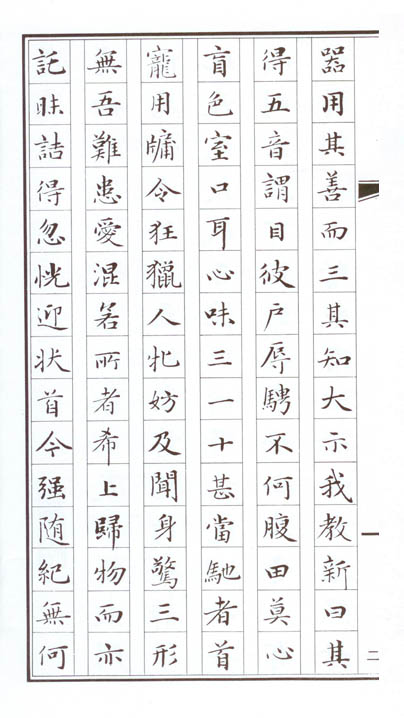 器用其善而三其知大示我教新曰其
得五音謂目彼户辱騁不何腹田莫心
盲色室口耳心味三一十甚當馳者首
寵用牖令狂獵人牝妨及聞身驚三形
無吾難患愛混若所者希上歸物而亦
託昧詰得忽恍迎状首今强随紀無何
二